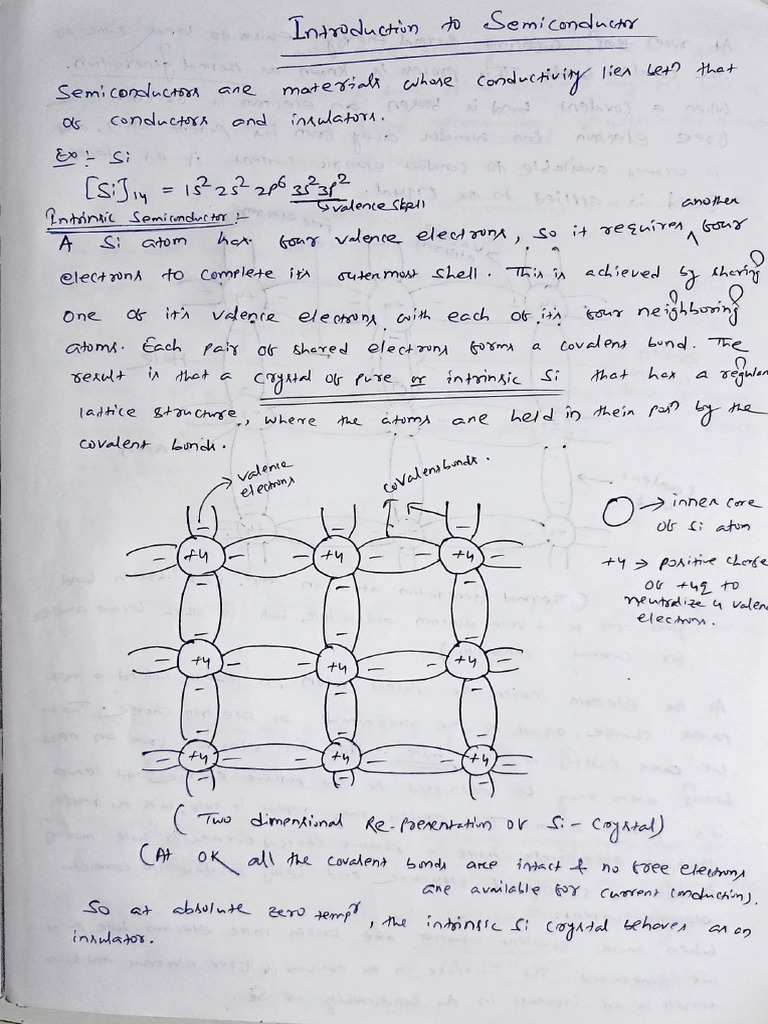 Introduction to Semiconductor
Semiconductors are materials whose conductivity lies betn that
of conductors and insulators.
Ex :- Si
[Si]14 = 1s² 2s² 2p⁶ 3s² 3p²
valence shell
Intrinsic Semiconductor :-
another
A Si atom has four valence electrons, so it requires ^ four
electrons to complete its outermost shell. This is achieved by sharing
one of it's valence electrons with each of it's four neighboring
atoms. Each pair of shared electrons forms a covalent bond. The
result is that a crystal of pure or intrinsic Si that has a regular
lattice structure, where the atoms are held in their posn by the
covalent bonds.
valence
electrons
covalent bonds.
inner core
of Si atom
+4 → positive charge
of +4q to
neutralize 4 valenc
electrons.
+4 +4 +4
+4 +4 +4
+4 +4 +4
( Two dimensional Re-presentation of Si - crystal)
(At 0K all the covalent bonds are intact & no free electrons
are available for current conduction).
So at absolute zero tempr, the intrinsic Si crystal behaves as an
insulator.